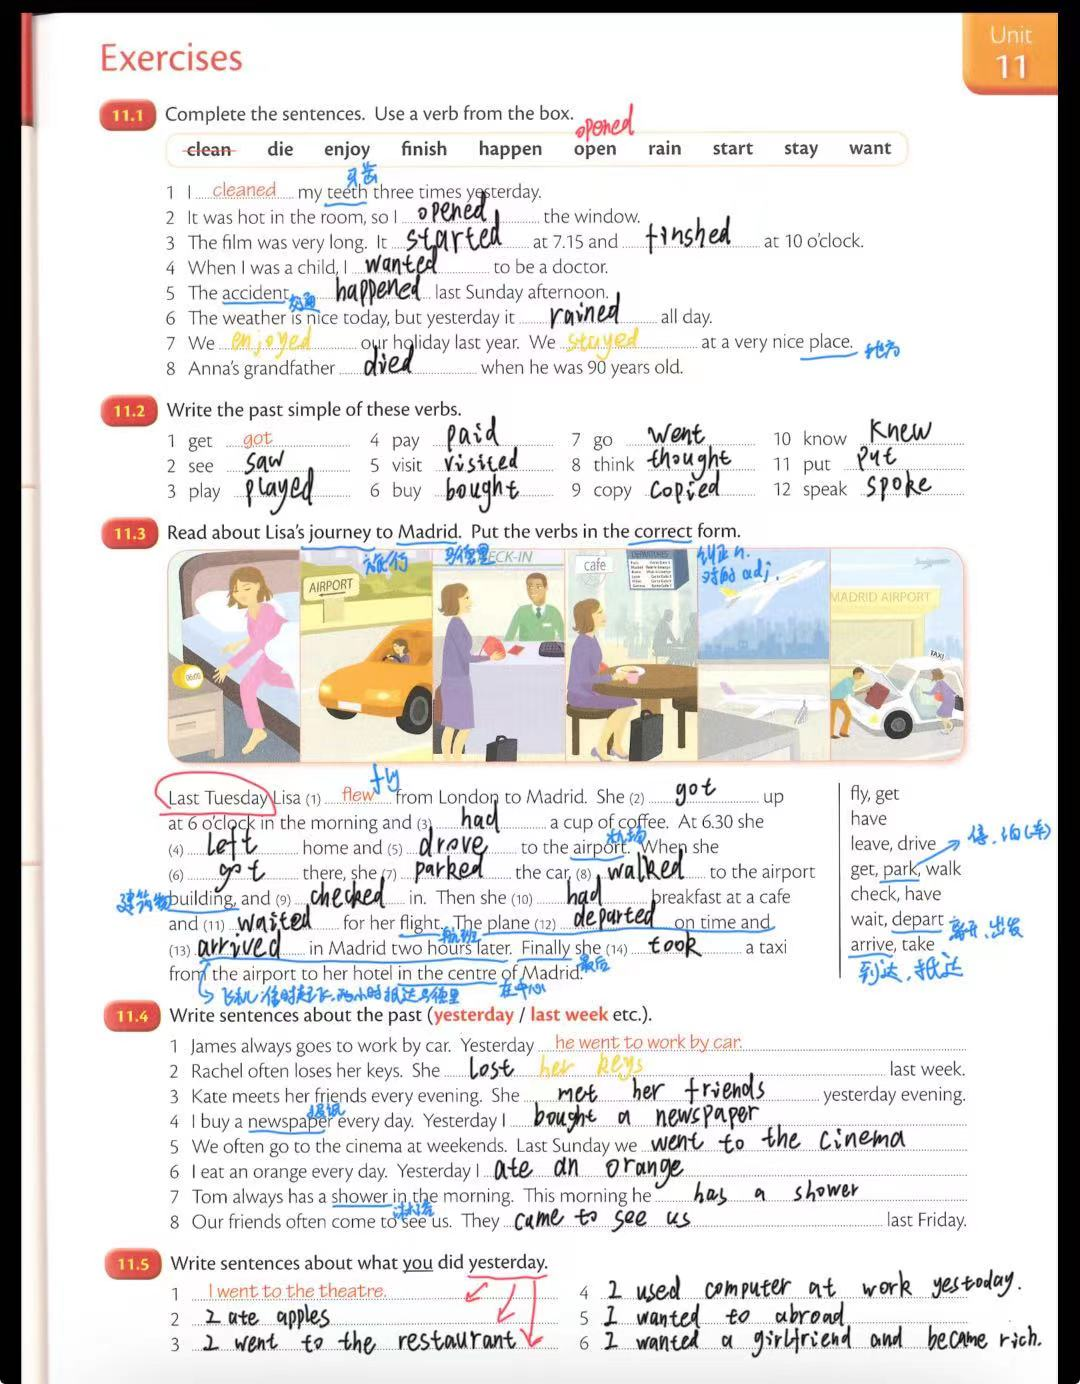 Unit
11
Exercises
11.1 Complete the sentences. Use a verb from the box.
opened
clean die enjoy finish happen open rain start stay want
牙齿
1 I cleaned my teeth three times yesterday.
2 It was hot in the room, so I opened the window.
3 The film was very long. It started at 7.15 and finshed at 10 o'clock.
4 When I was a child, I wanted to be a doctor.
5 The accident happened last Sunday afternoon.
交通
6 The weather is nice today, but yesterday it rained all day.
7 We enjoyed our holiday last year. We stayed at a very nice place. 地方
8 Anna's grandfather died when he was 90 years old.
11.2 Write the past simple of these verbs.
1 get got 4 pay paid 7 go went 10 know knew
2 see saw 5 visit visited 8 think thought 11 put put
3 play played 6 buy bought 9 copy copied 12 speak spoke
11.3 Read about Lisa's journey to Madrid. Put the verbs in the correct form.
旅行 马德里 纠正 n.
对的 adj.
AIRPORT
CHECK-IN
cafe
DEPARTURES
MADRID AIRPORT
TAXI
06:00
fly
Last Tuesday Lisa (1) flew from London to Madrid. She (2) got up
at 6 o'clock in the morning and (3) had a cup of coffee. At 6.30 she
机场
(4) left home and (5) drove to the airport. When she
(6) got there, she (7) parked the car, (8) walked to the airport
建筑物 building, and (9) checked in. Then she (10) had breakfast at a cafe
and (11) waited for her flight. The plane (12) departed on time and
航班
(13) arrived in Madrid two hours later. Finally she (14) took a taxi
最后
from the airport to her hotel in the centre of Madrid.
飞机准时起飞,两小时抵达马德里 在中心
fly, get
have
leave, drive 停、泊(车)
get, park, walk
check, have
wait, depart 离开、出发
arrive, take
到达、抵达
11.4 Write sentences about the past (yesterday / last week etc.).
1 James always goes to work by car. Yesterday he went to work by car.
2 Rachel often loses her keys. She lost her keys last week.
3 Kate meets her friends every evening. She met her friends yesterday evening.
报纸
4 I buy a newspaper every day. Yesterday I bought a newspaper
5 We often go to the cinema at weekends. Last Sunday we went to the cinema
6 I eat an orange every day. Yesterday I ate an orange
7 Tom always has a shower in the morning. This morning he has a shower
淋浴
8 Our friends often come to see us. They came to see us last Friday.
11.5 Write sentences about what you did yesterday.
1 I went to the theatre.
2 I ate apples
3 I went to the restaurant
4 I used computer at work yestoday.
5 I wanted to abroad
6 I wanted a girlfriend and became rich.